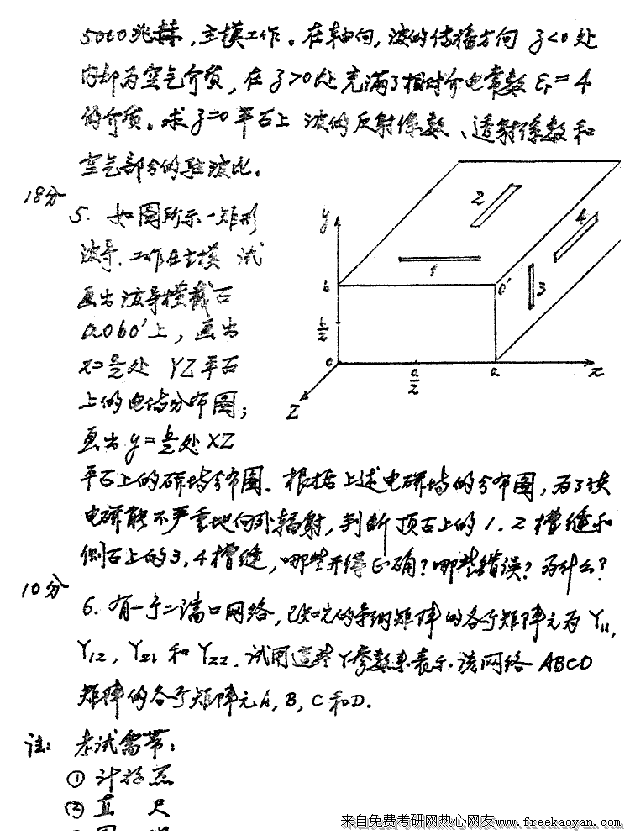 5000兆赫,主模工作。在轴向,波的传播方向 z<0 处
内部为空气介质,在 z>0 处充满了相对介电常数 εr=4
的介质。求 z=0 平面上 波的反射系数、透射系数和
空气部分的驻波比。
18分
5. 如图所示一矩形
波导,工作在主模 试
画出波导横截面
a0bb'上,画出
x=a/2处 YZ平面
上的电场分布图;
画出y=b/2处XZ
平面上的磁场分布图。根据上述电磁场的分布图,为了使
电磁能不严重地向外辐射,判断顶面上的1、2槽缝和
侧面上的3,4槽缝,哪些开得正确?哪些错误?为什么?
y
b
b/2
0
Z
a/2
a
x
b'
1
2
3
4
10分
6. 有一个二端口网络,已知它的导纳矩阵的各个矩阵元为 Y11,
Y12,Y21 和 Y22. 试用这些Y参数来表示 该网络 ABCD
矩阵的各个矩阵元A,B,C和D.
注: 考试需带:
① 计算器
② 直 尺
来自免费考研网热心网友www.freekaoyan.com